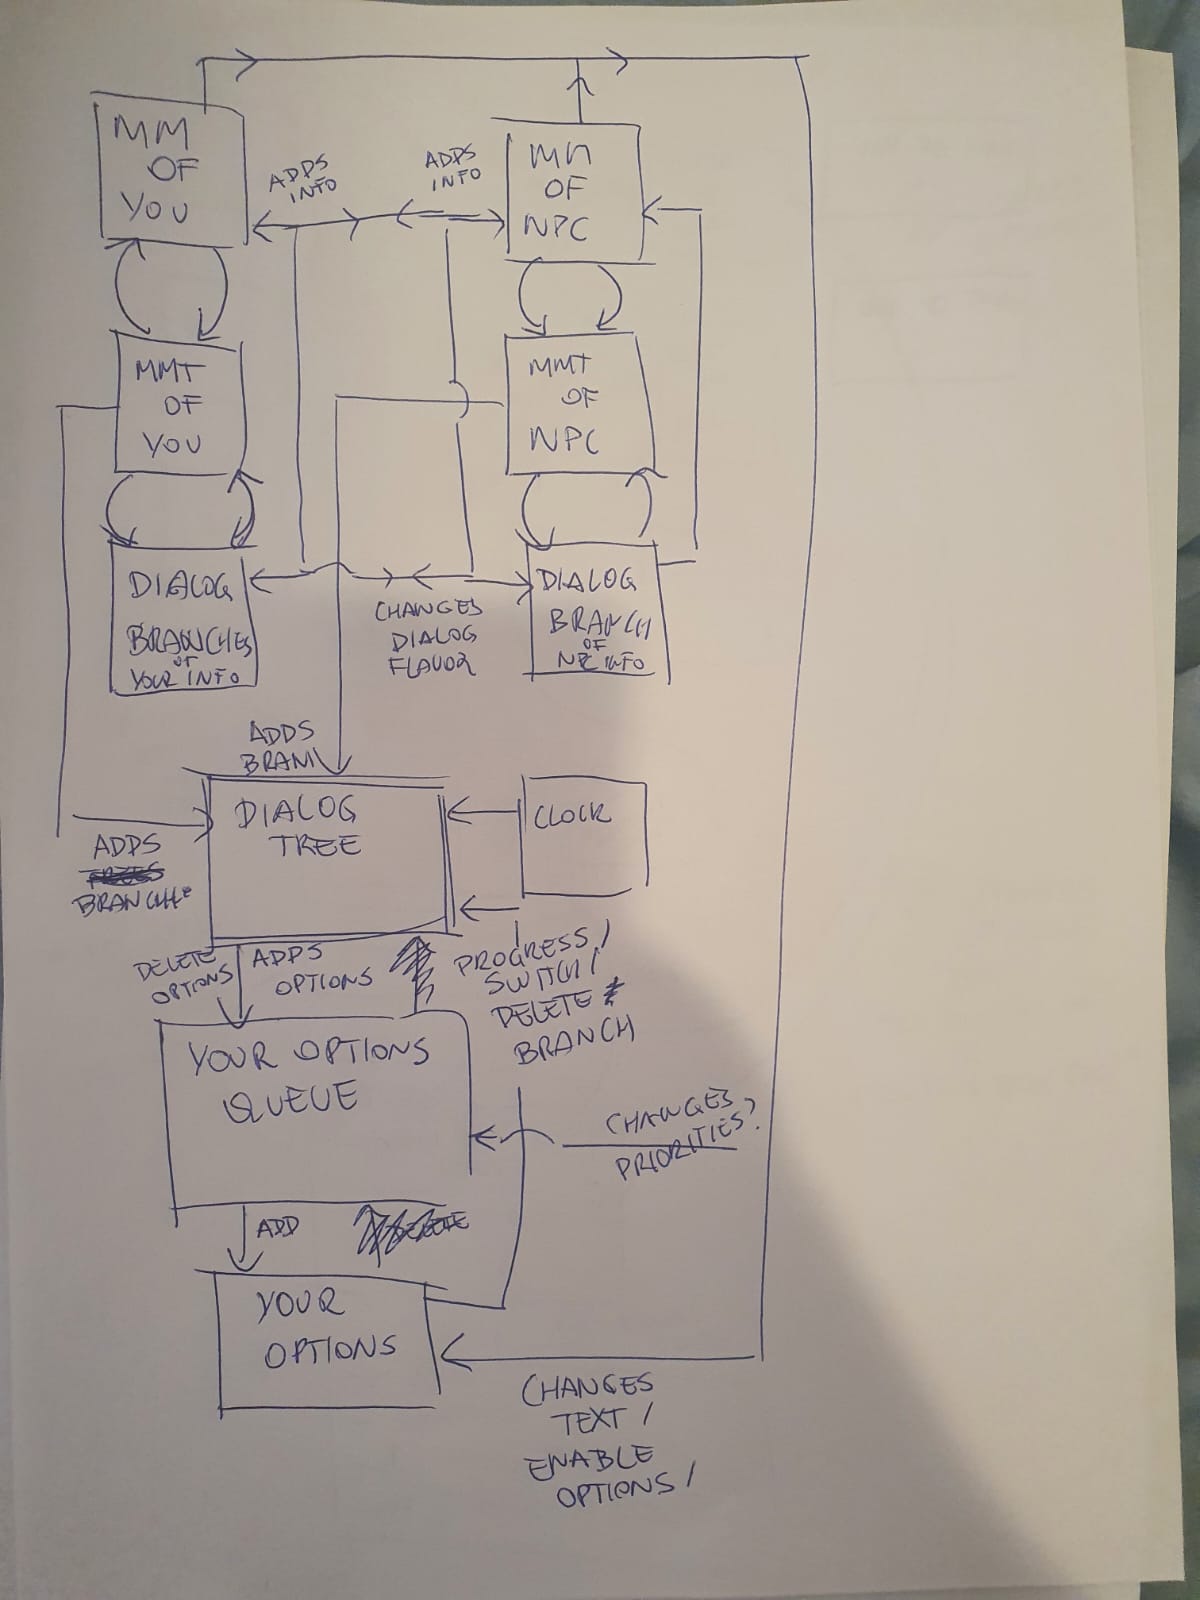 MM
OF
YOU
ADDS
INFO
ADDS
INFO
MM
OF
NPC
MMT
OF
YOU
MMT
OF
NPC
DIALOG
BRANCHES
OF
YOUR INFO
CHANGES
DIALOG
FLAVOR
DIALOG
BRANCH
OF
NPC INFO
ADDS
BRAN
DIALOG
TREE
CLOCK
ADDS
BRANCH
DELETE
OPTIONS
ADDS
OPTIONS
PROGRESS/
SWITCH/
DELETE
BRANCH
YOUR OPTIONS
QUEUE
CHANGES
PRIORITIES?
ADD
DELETE
YOUR
OPTIONS
CHANGES
TEXT /
ENABLE
OPTIONS /